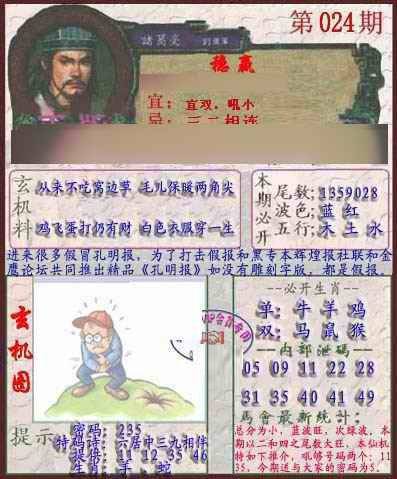 第024期
諸葛亮 劉備軍
稳赢
宜: 宜双,吼小
忌: 三二相连
玄机料
从来不吃窝边草 毛儿保暖两角尖
鸡飞蛋打仍有财 白色衣服穿一生
本期必开
尾数:1359028
波色:蓝 红
五行:木 土 水
进来很多假冒孔明报,为了打击假报和黑专本辉煌报社联和金
鹰论坛共同推出精品《孔明报》如没有雕刻字版,都是假报。
玄机图
--必开生肖--
单:牛 羊 鸡
双:马 鼠 猴
--内部泄码--
05 09 11 22 28
31 35 40 41 49
馬會最新統計:
总分为小,蓝波旺,次绿波,本
期以二和四之尾数大旺,本仙机
特如下推介,吼够号码两个:11
35,今期送与大家的密码为5.
提示
密码: 235
特码诗:六居中三九相伴
提供: 11 12 35 46
生肖: 羊 蛇